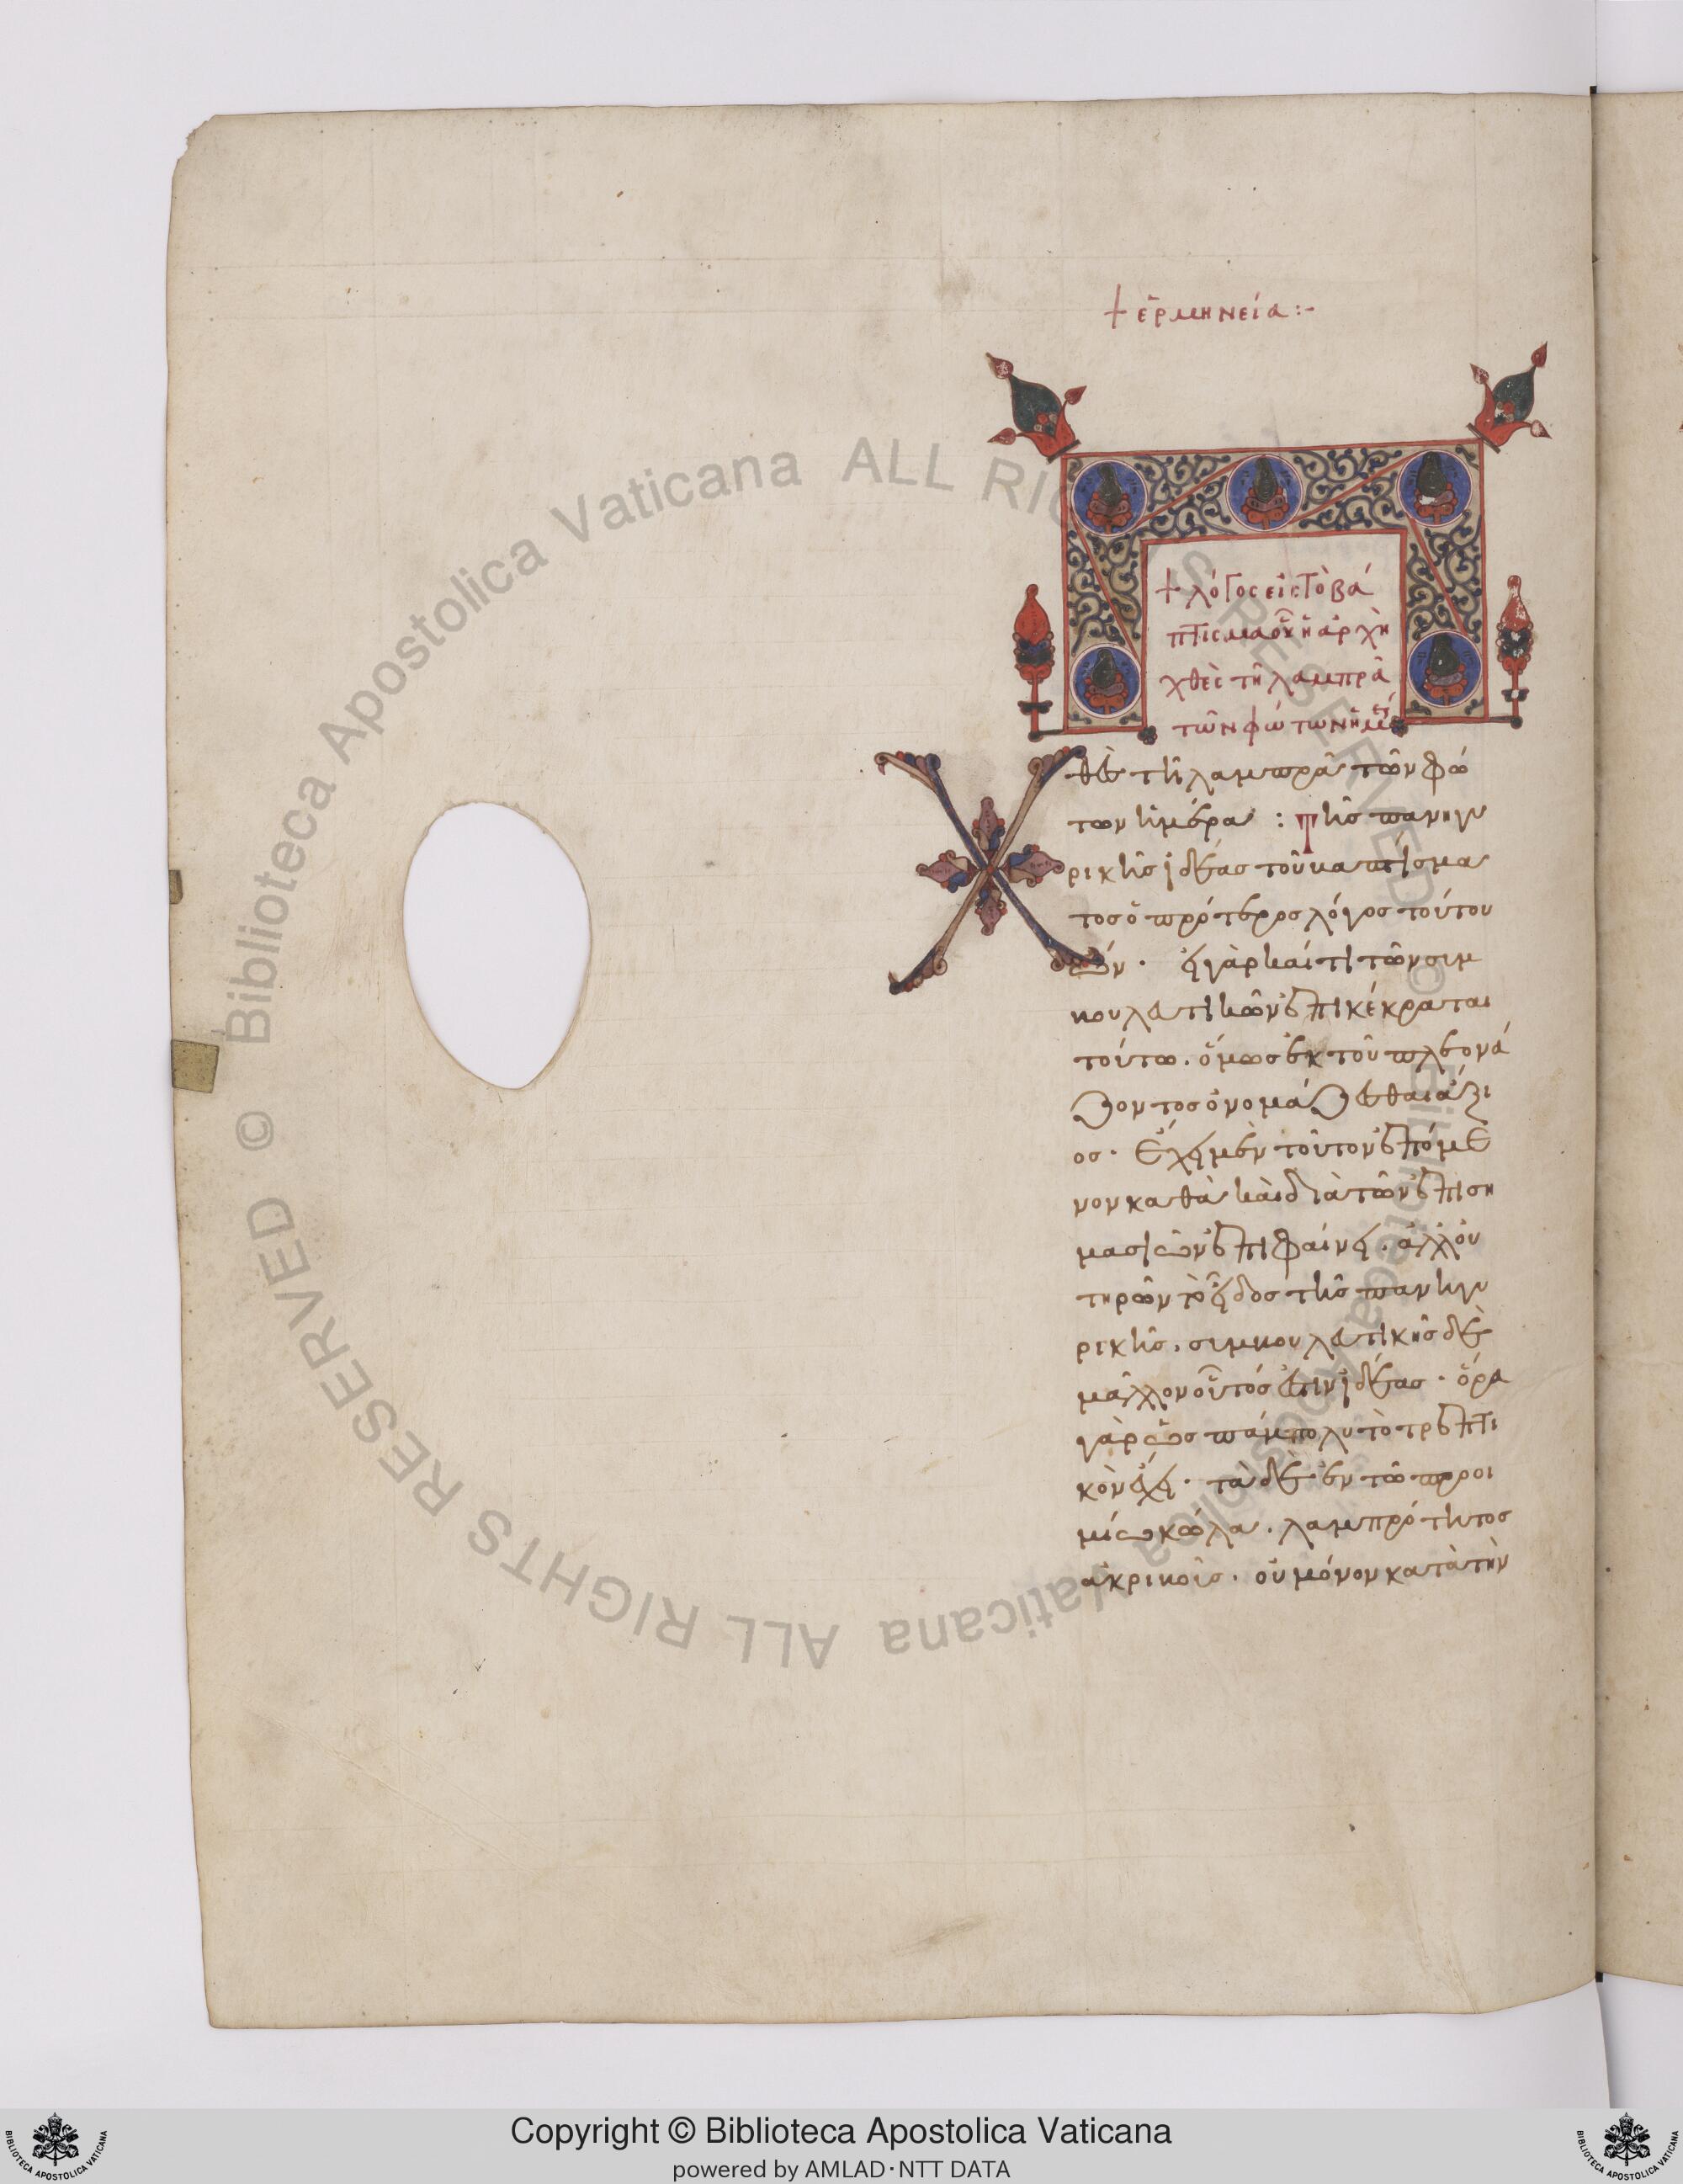 + ἑρμηνεία :-
+ λόγος εἰς τὸ βά
πτισμα οὗ ἡ ἀρχὴ
χθὲς τῆ λαμπρᾶ
τῶν φώτων ἡμέ
Χθὲς τῆ λαμπρᾶ τῶν φώ
των ἡμέρα : Τῆς πανηγυ
ρικῆς ἰδέας τοῦ βαπτίσμα
τος ὁ πρότερος λόγος τούτου
ὤν · εἰ γὰρ καί τι τῶν συμ
βουλευτικῶν ἐπικέκραται
τούτω · ὅμως ἐκ τοῦ πλεονά
ζοντος ὀνομάζεσθαι ἄξι
ος · Ἔχει μὲν τοῦτον ἑπόμε
νον καθὰ καὶ διὰ τῶν ἐπιση
μασιῶν ἐπιφαίνει · ἀλλ' οὐ
τηρῶν τὸ εἶδος τῆς πανηγυ
ρικῆς · συμβουλευτικῆς δὲ
μᾶλλον οὗτός ἐστιν ἰδέας · ὅρα
γὰρ ὡς πάμπολυ τὸ τρεπτι
κὸν ἔχει · τὰ δὲ ἐν τῶ προοι
μίω κῶλα · λαμπρότητος
ἀκριβοῦς · οὐ μόνον κατὰ τὴν
Biblioteca Apostolica Vaticana ALL RIGHTS RESERVED ©
Biblioteca Apostolica Vaticana ALL RIGHTS RESERVED ©
Copyright © Biblioteca Apostolica Vaticana
powered by AMLAD·NTT DATA
BIBLIOTECA APOSTOLICA VATICANA
BIBLIOTECA APOSTOLICA VATICANA